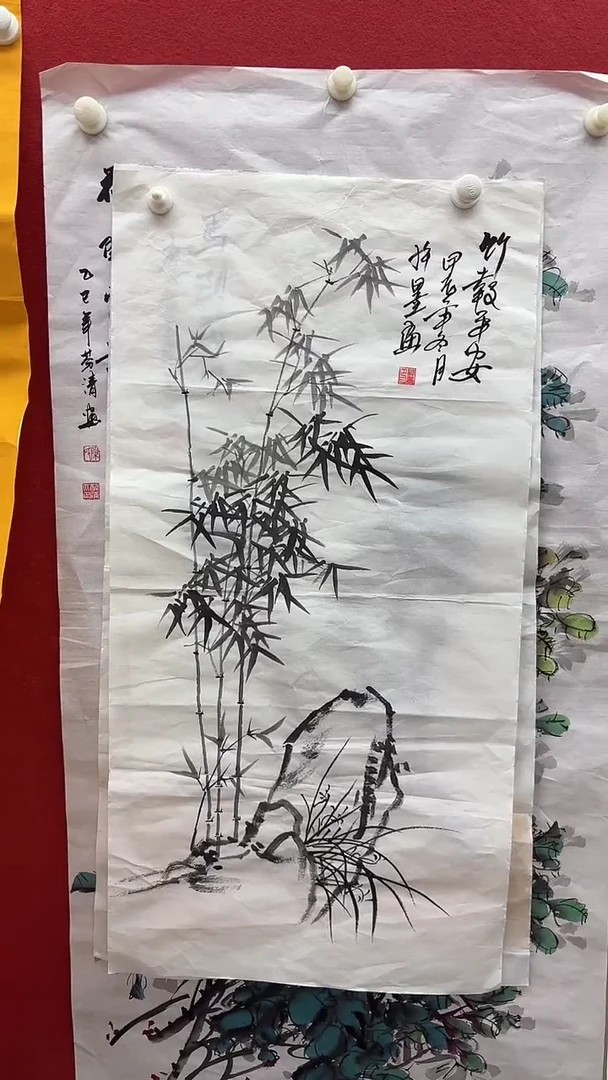 竹報平安
甲辰年冬月
墨画
乙巳年芬清画